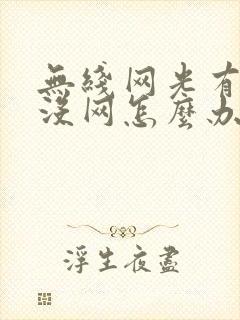 無綫网光有
没网怎麽办
浮生夜盡